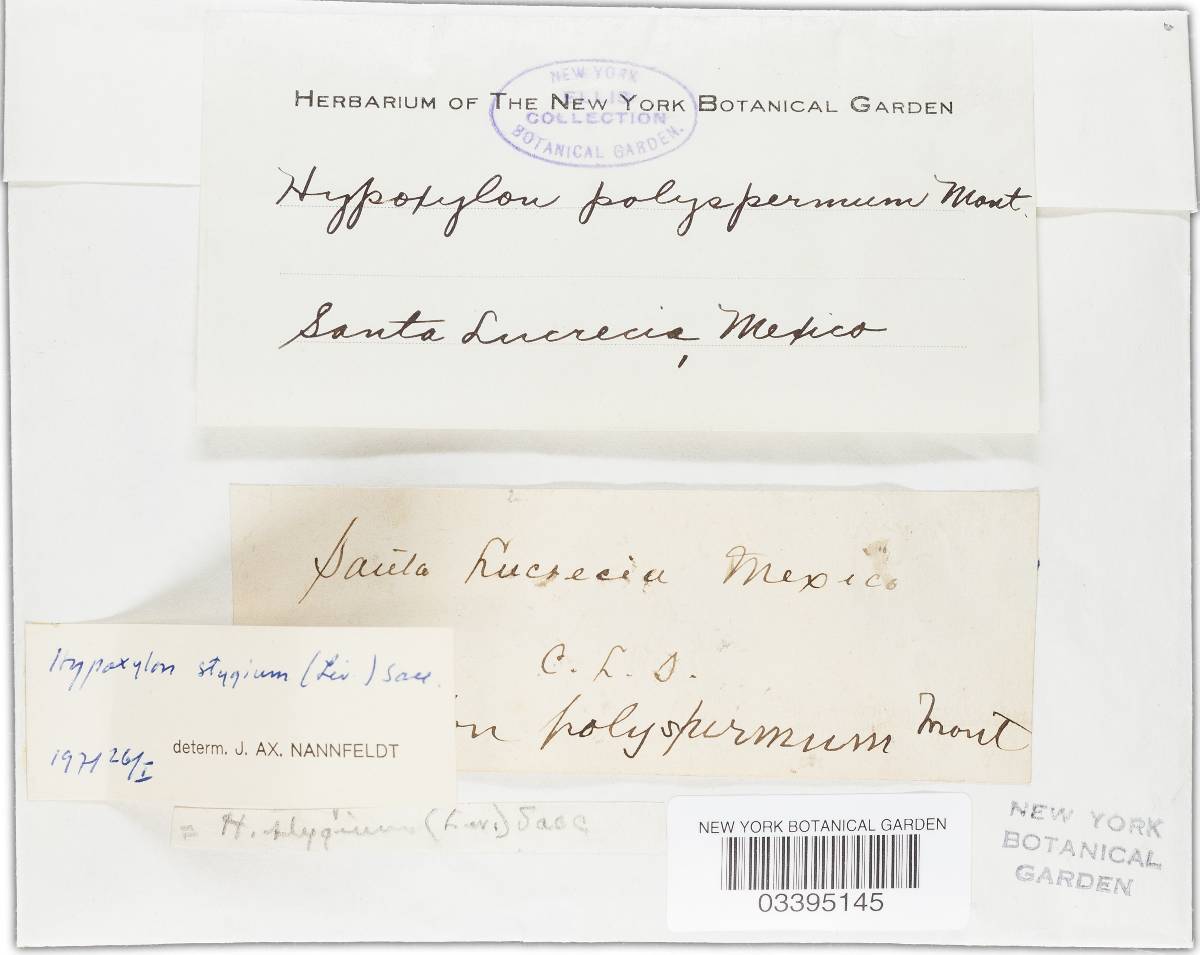 HERBARIUM OF THE NEW YORK BOTANICAL GARDEN
NEW YORK
ELLIS
COLLECTION
BOTANICAL GARDEN.
Hypoxylon polyspermum Mont.
Santa Lucrecia, Mexico
Santa Lucrecia Mexico
C. L. S.
on polyspermum Mont
Hypoxylon stygium (Lév.) Sacc.
determ. J. AX. NANNFELDT
1971 26/I
= H. stygium (Lev.) Sacc
NEW YORK BOTANICAL GARDEN
03395145
NEW YORK
BOTANICAL
GARDEN